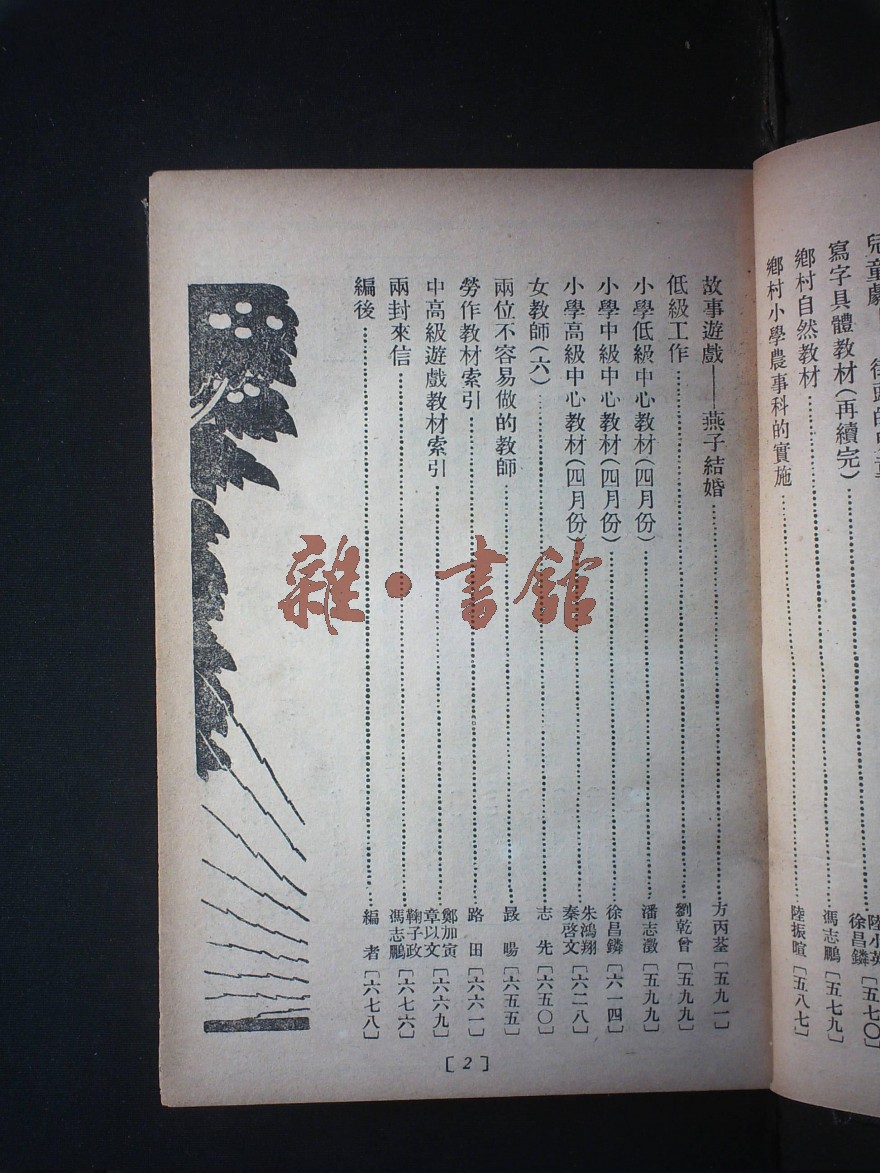 兒童劇
寫字具體教材(再續完)……陸小英 徐昌鏻[五七〇]
鄉村自然教材……馮志鵬[五七九]
鄉村小學農事科的實施……陸振暄[五八七]
故事遊戲——燕子結婚……方丙荃[五九一]
低級工作……劉乾曾[五九九]
小學低級中心教材(四月份)……潘志澂[五九九]
小學中級中心教材(四月份)……徐昌鏻[六一四]
小學高級中心教材(四月份)……朱鴻翔 秦啓文[六二八]
女教師(六)……志先[六五〇]
兩位不容易做的教師……暘[六五五]
勞作教材索引……路田[六六一]
中高級遊戲教材索引……鄭加寅 章以文[六六九]
兩封來信……鞠子政 馮志鵬[六七六]
編後……編者[六七八]
[2]
雜·書館